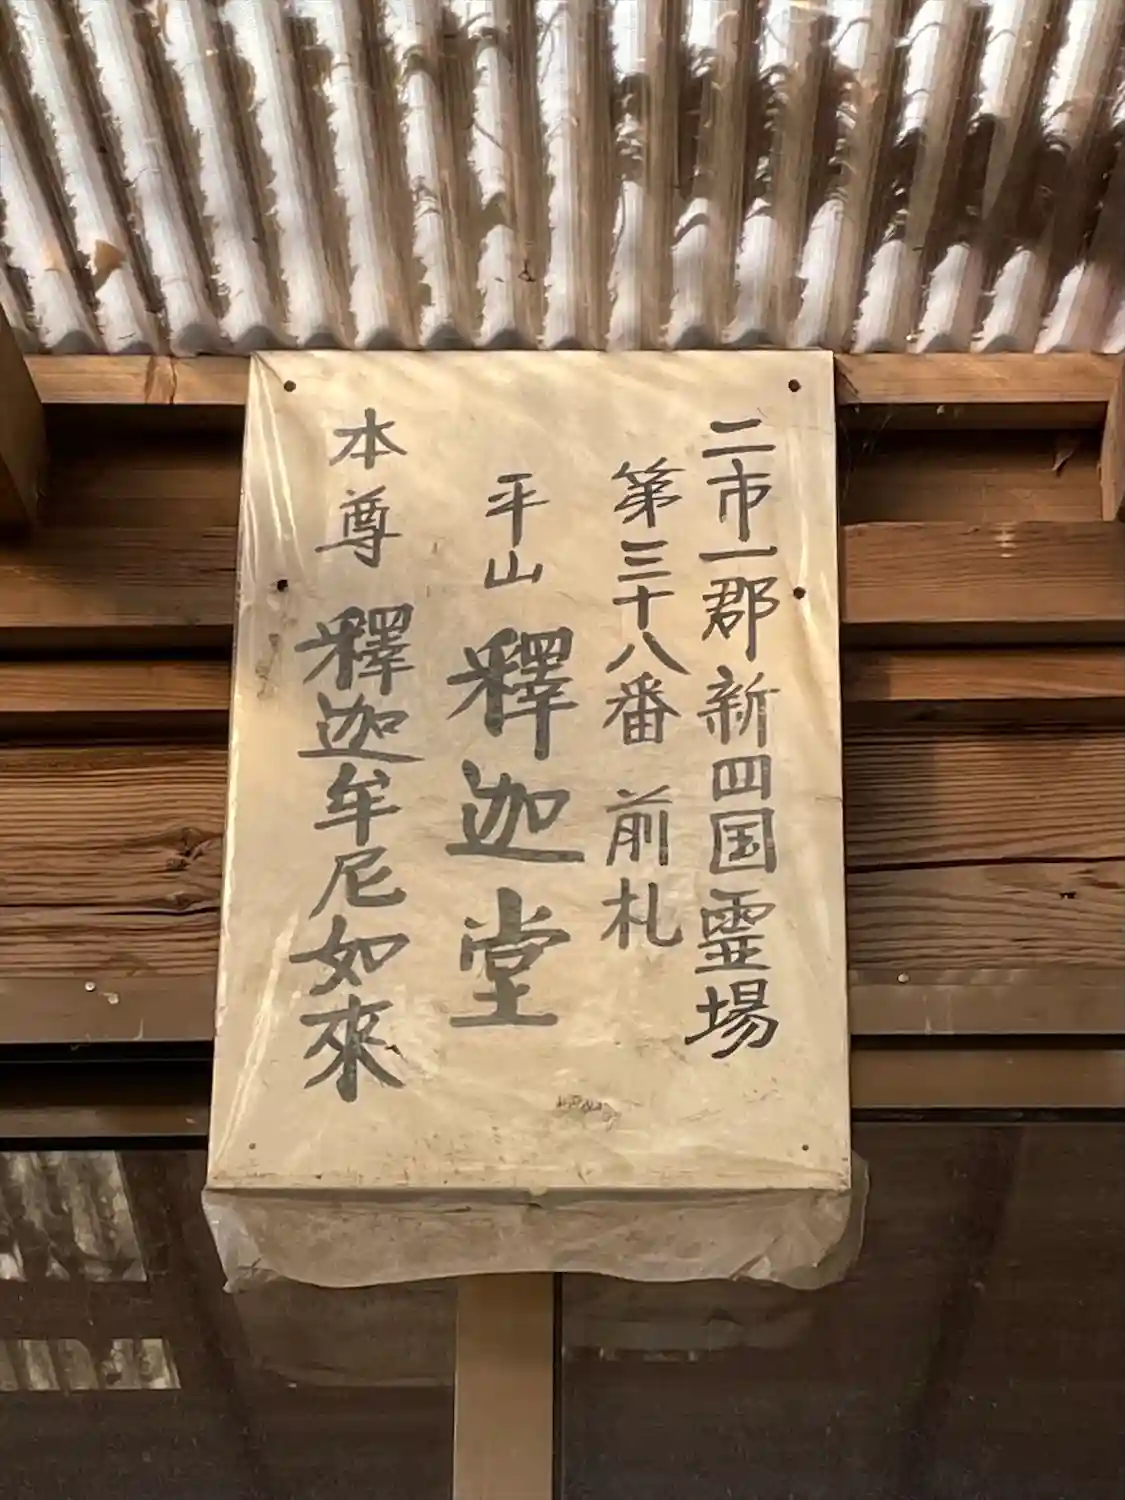 二市一郡新四国霊場
第三十八番 前札
平山 釋迦堂
本尊 釋迦牟尼如來